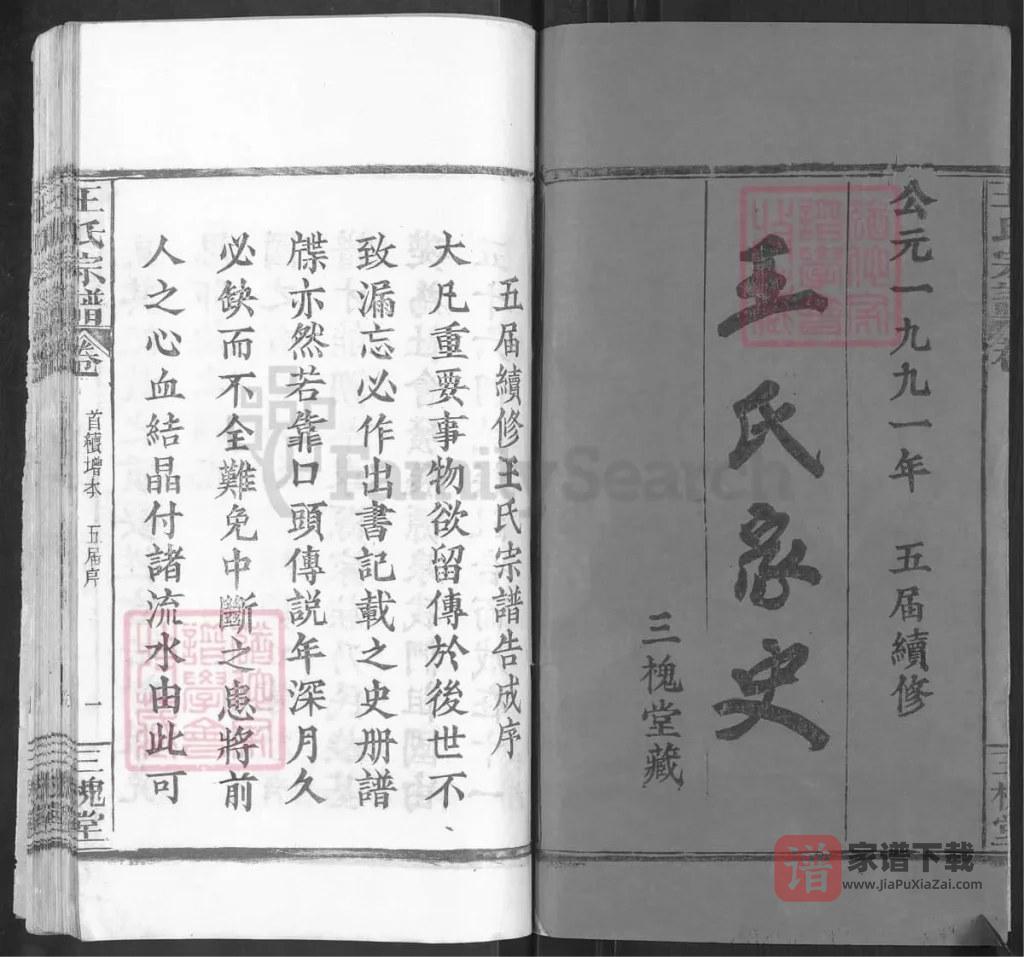 公元一九九一年 五届續修
王氏家史
三槐堂藏
五届續修王氏宗譜告成序
大凡重要事物欲留傳於後世不
致漏忘必作出書記載之史册譜
牒亦然若靠口頭傳説年深月久
必缺而不全難免中斷之患將前
人之心血結晶付諸流水由此可
王氏宗譜 卷 首續增本 五届序 一 三槐堂
FamilySearch
譜 家谱下载
www.JiaPuXiaZai.com